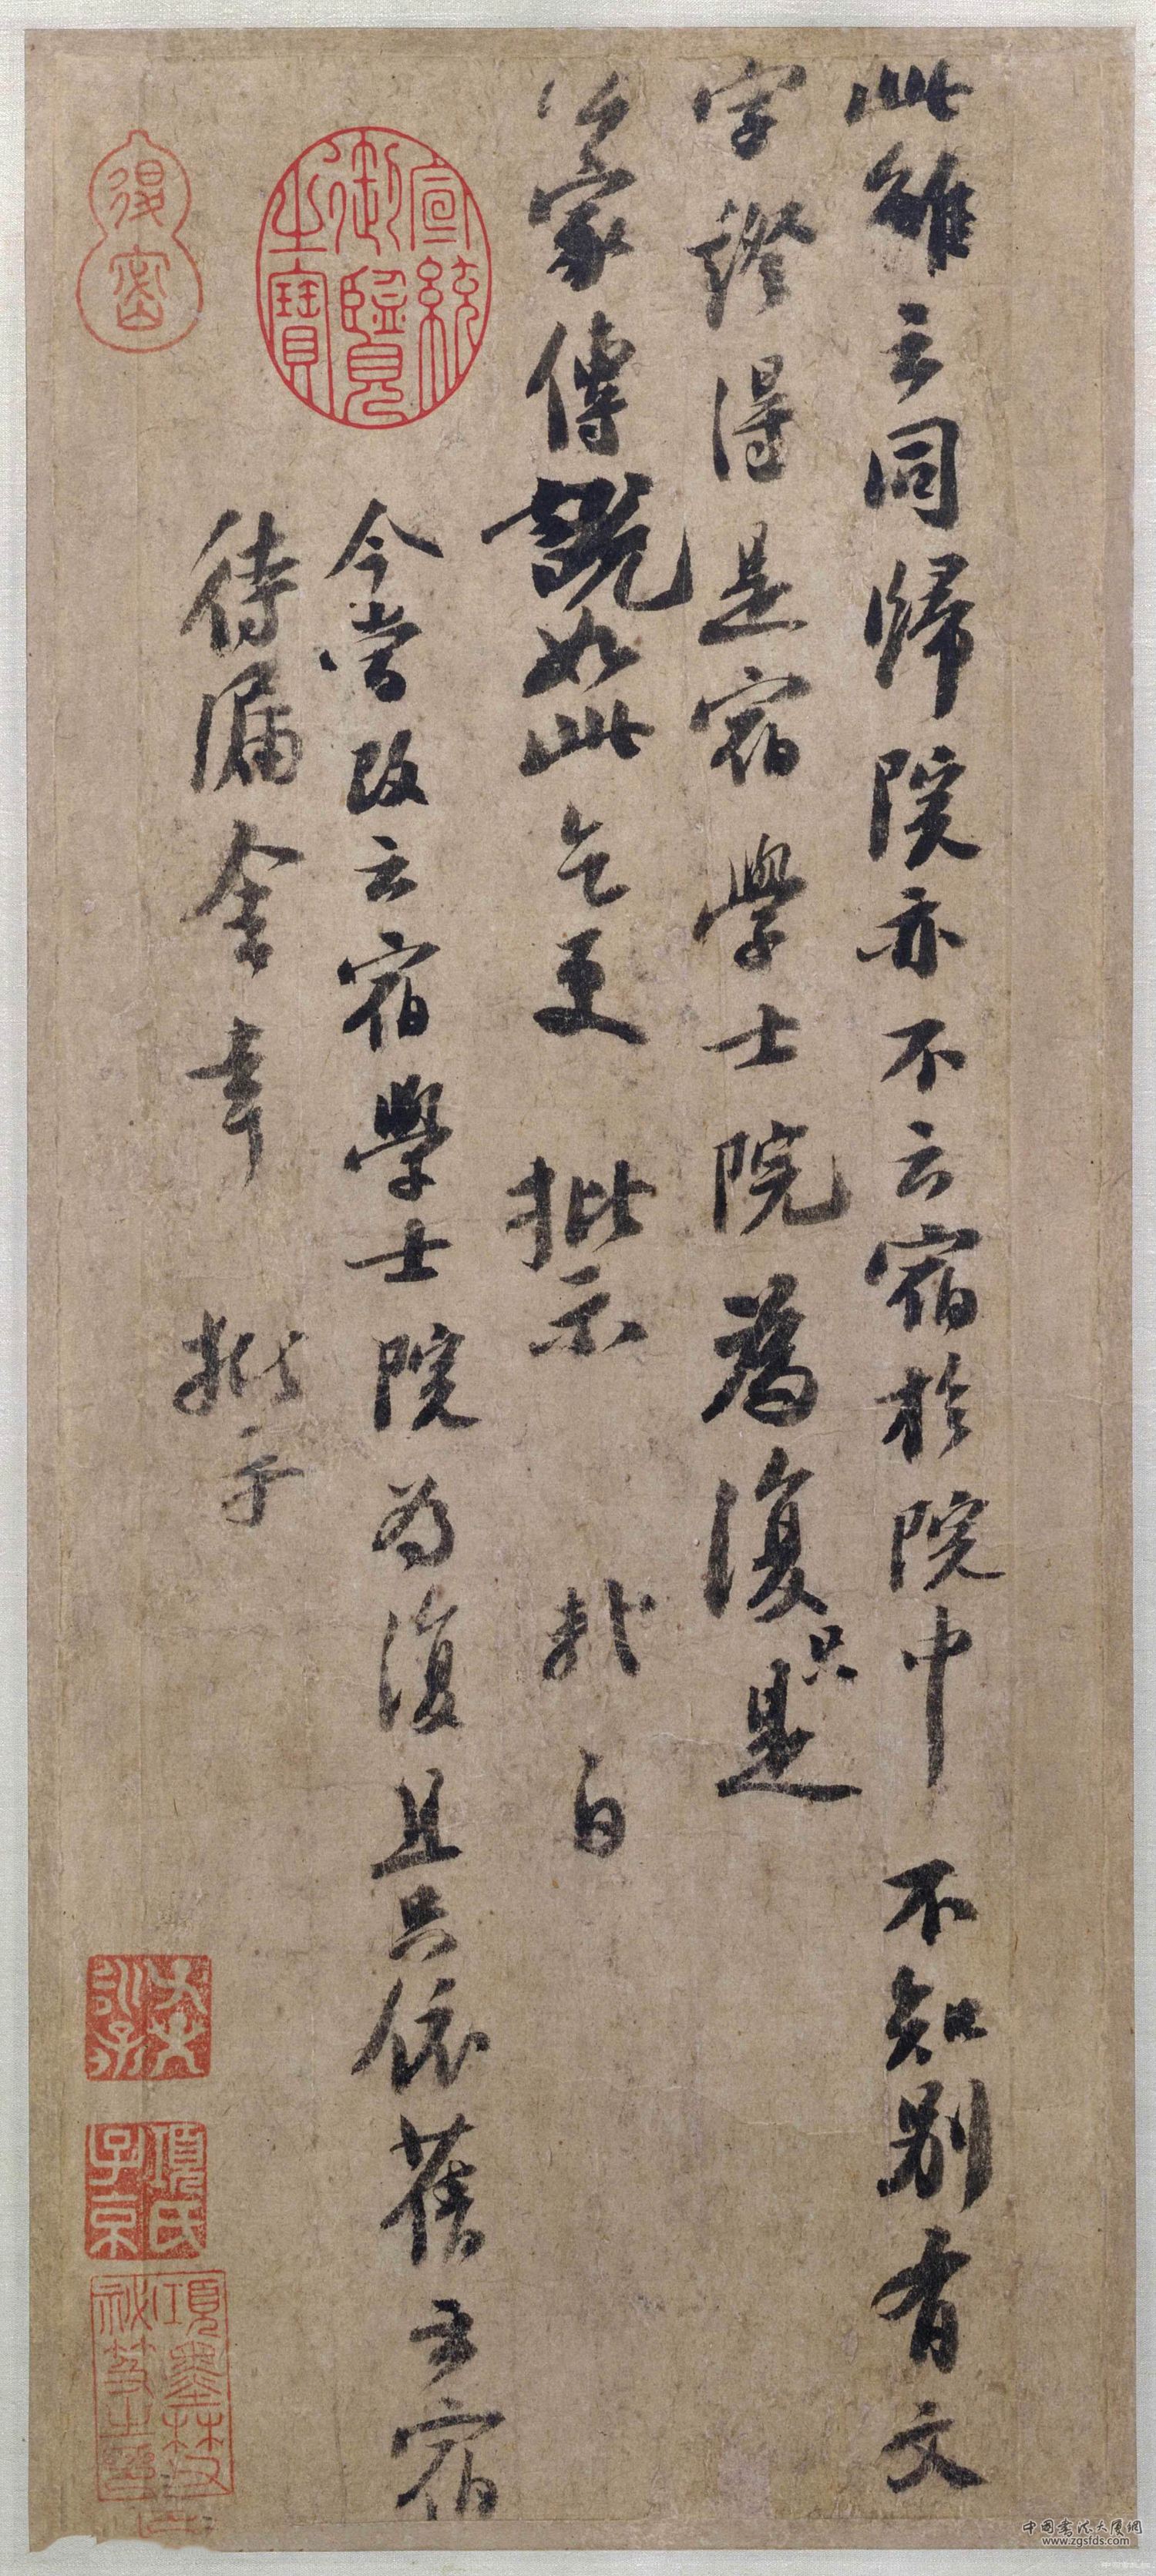 此雖云同歸院亦不云宿於院中不知別有文
字證得是宿學士院為復只是
公家傳說如此乞更批示 軾白
今當改云宿學士院為復且只依舊云宿
待漏舍幸批示
宣統御覽之寶
得密
項氏子京
項墨林父祕笈之印
中國書法大廈網
www.zgsfds.com